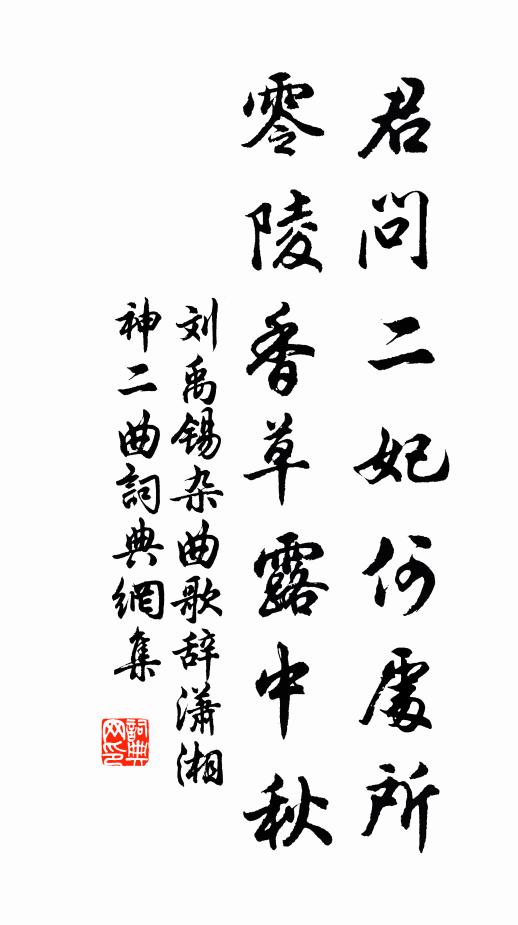 君问二妃何處所
零陵香草露中秋
刘禹锡杂曲歌辞潇湘
神二曲詞典網集
詞典
网印